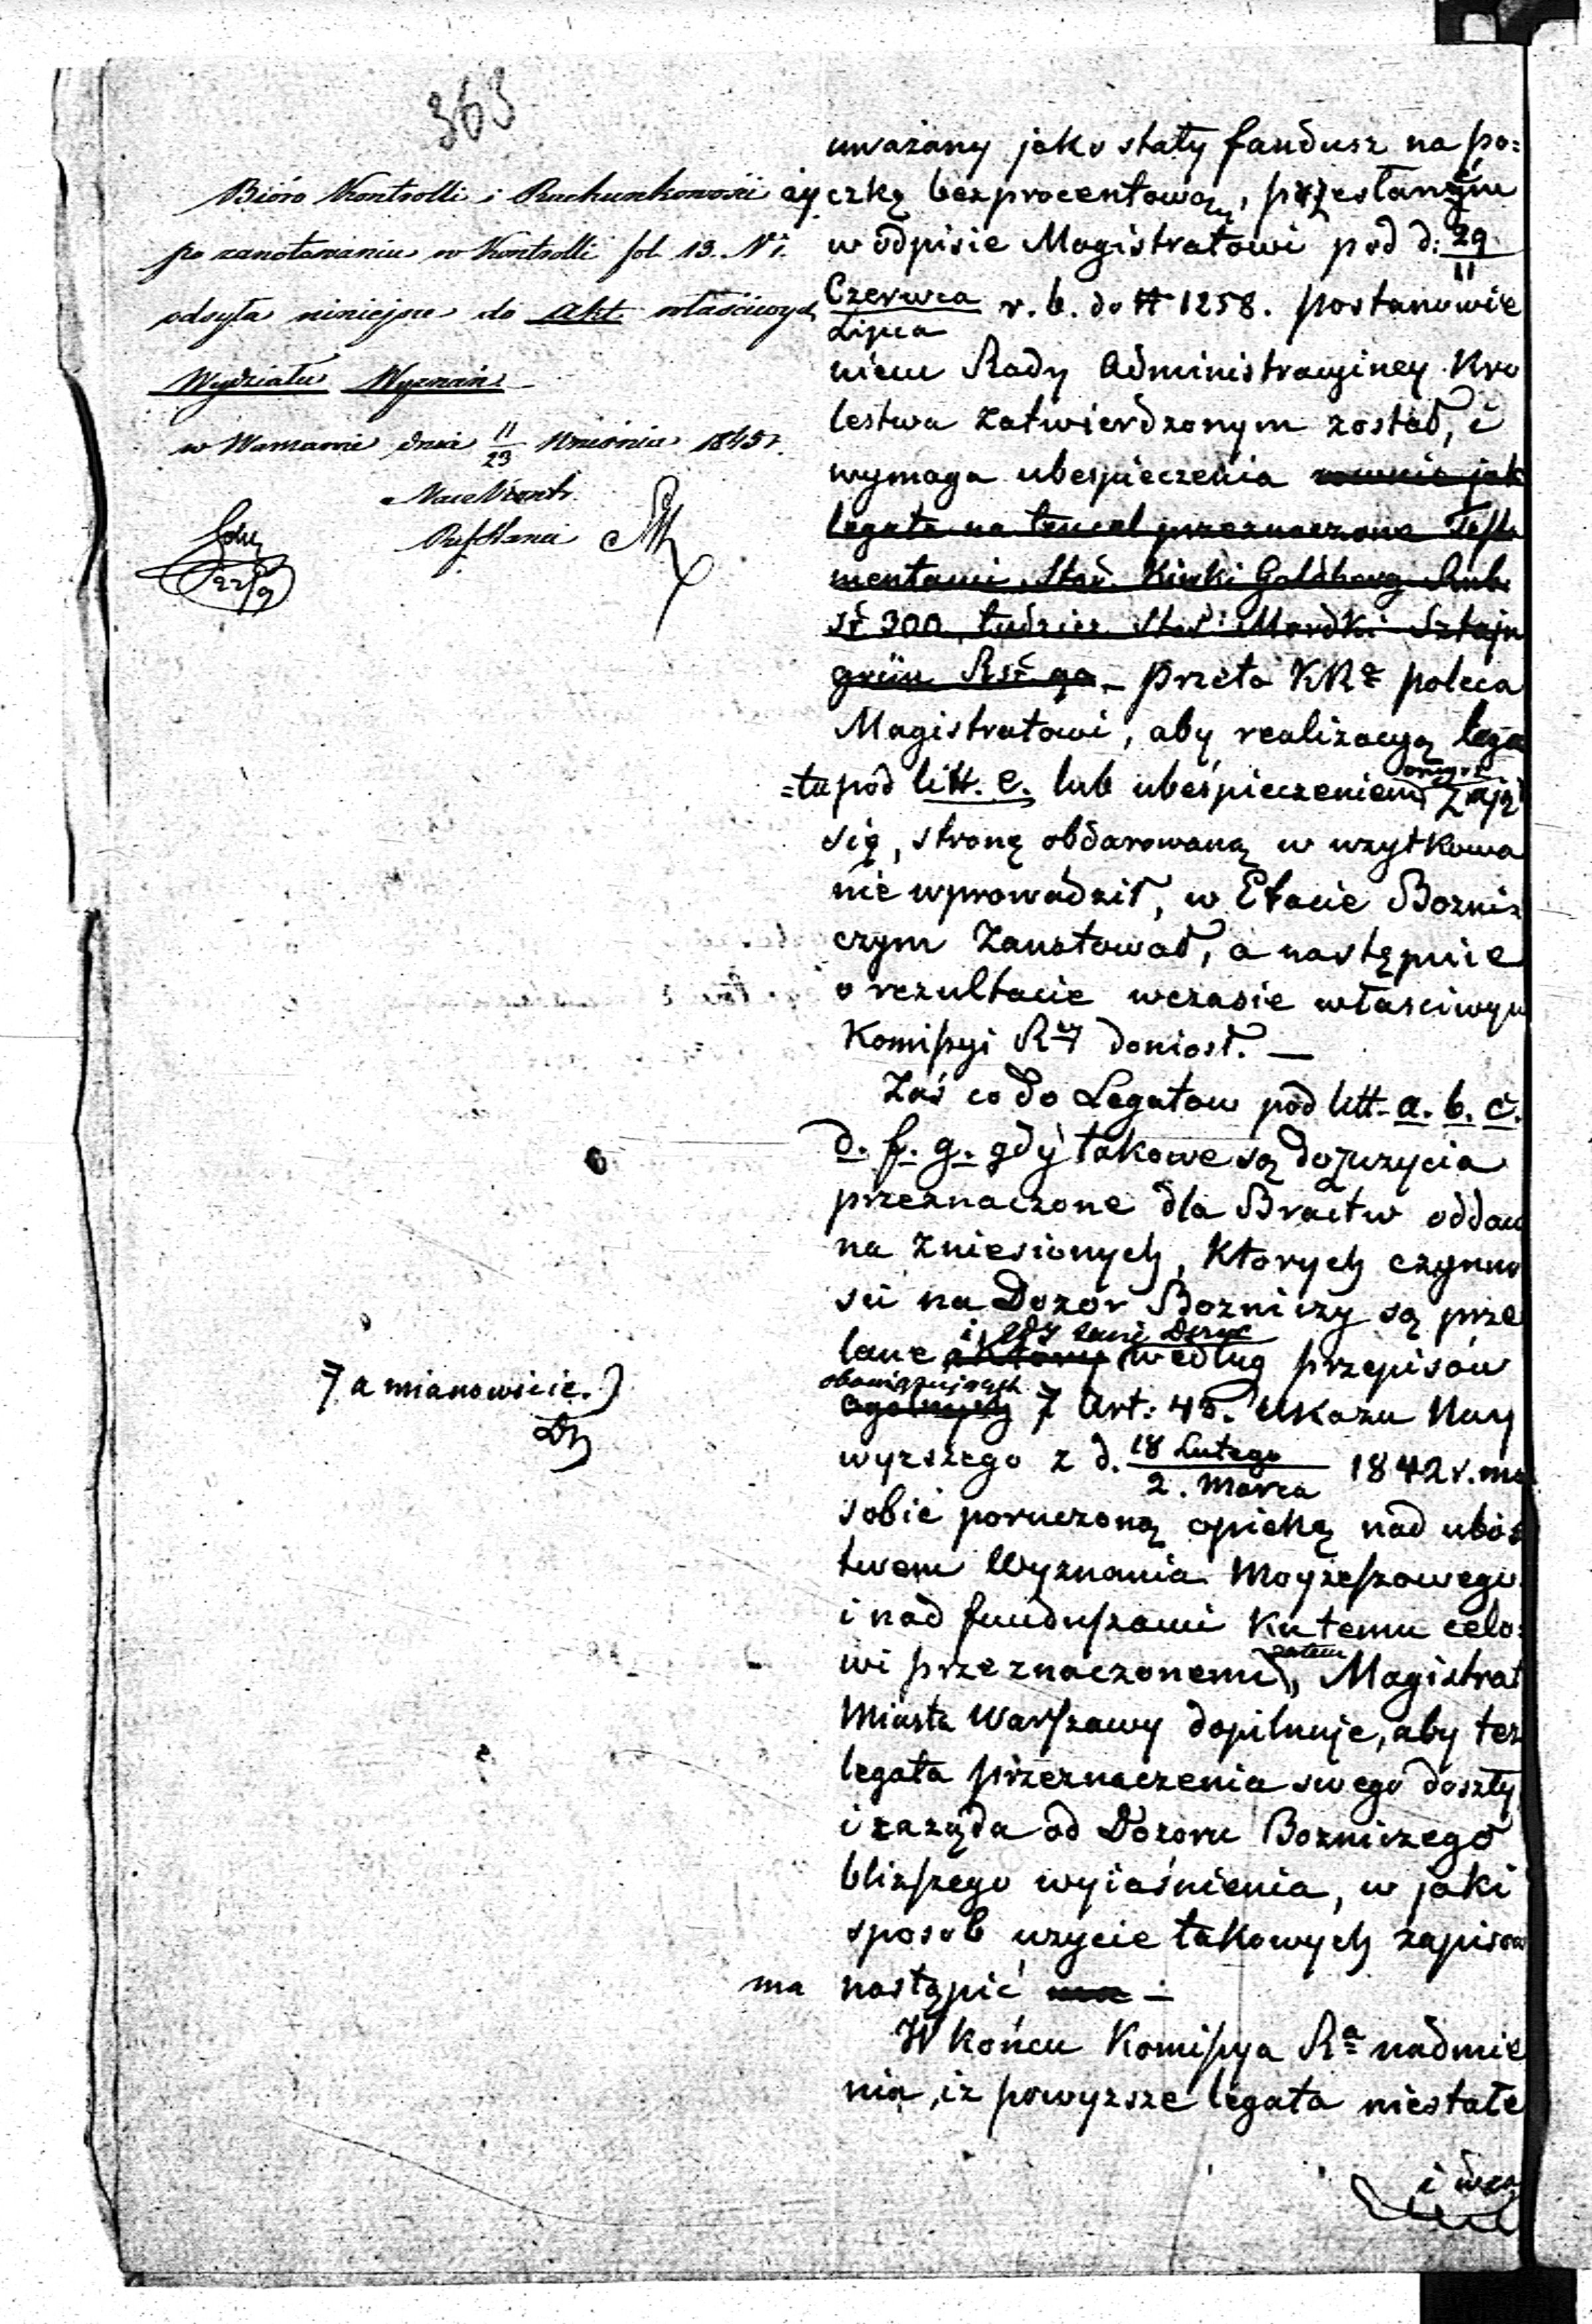 363
Bióro Kontrolli i Rachunkowości
po zanotowaniu w Kontrolli fol. 13. N 1.
odsyła niniejsze do Akt właściwych
Wydziału Wyznań
w Warszawie dnia 11/23 Września 1845 r.
Naczelnik
uważany jako stały fundusz na po:
życzkę bezprocentową, przesłanym
w odpisie Magistratowi pod d: 29
Czerwca / 11 Lipca r. b. do # 1258. postanowie
niem Rady Administracyjney Kro
lestwa zatwierdzonym został, i
wymaga ubespieczenia rownie jak
legata na tencel przeznaczone Testa
mentami Star. Kiwki Goldberg Rub.
sr 300, tudziez Star: Mordki Sztajn
grün Rsr 90 – przeto KRz poleca
Magistratowi, aby realizacyą lega
=tu pod litt. e. lub ubeśpieczeniem onegoż zajął
się, stronę obdarowaną w uzytkowa
nie wprowadził, w Etacie Bozni
czym zanotował, a następnie
o rezultacie wczasie właściwym
Komissyi Rwy doniosł. —
Zaś co do Legatow pod litt. a. b. c.
d. f. g. gdy takowe są do uzycia
przeznaczone dla Bractw oddaw
na zniesionych, Ktorych czynno
sci na Dozor Bozniczy są prze
lane aktory i gdy tenże Dozor według przepisów
ogolnych obowiązujących 7 Art: 45. Ukazu Nay
wyższego z d. 18 Lutego / 2. Marca 1842 r. ma
7 a mianowicie.)
sobie poruczoną opiekę nad ubós
twem Wyznania Moyżeszowego
i nad funduszami Ku temu celo:
wi przeznaczonemi, zatem Magistrat
Miasta Warszawy dopilnuje, aby tez
legata przeznaczenia swego doszły
i zażąda od Dozoru Bozniczego
bliższego wyiaśnienia, w jaki
sposob uzycie takowych zapisow
ma nastąpić ma –
W końcu Komissya Ra nadmie
nia, iz powyzsze legata niestałe